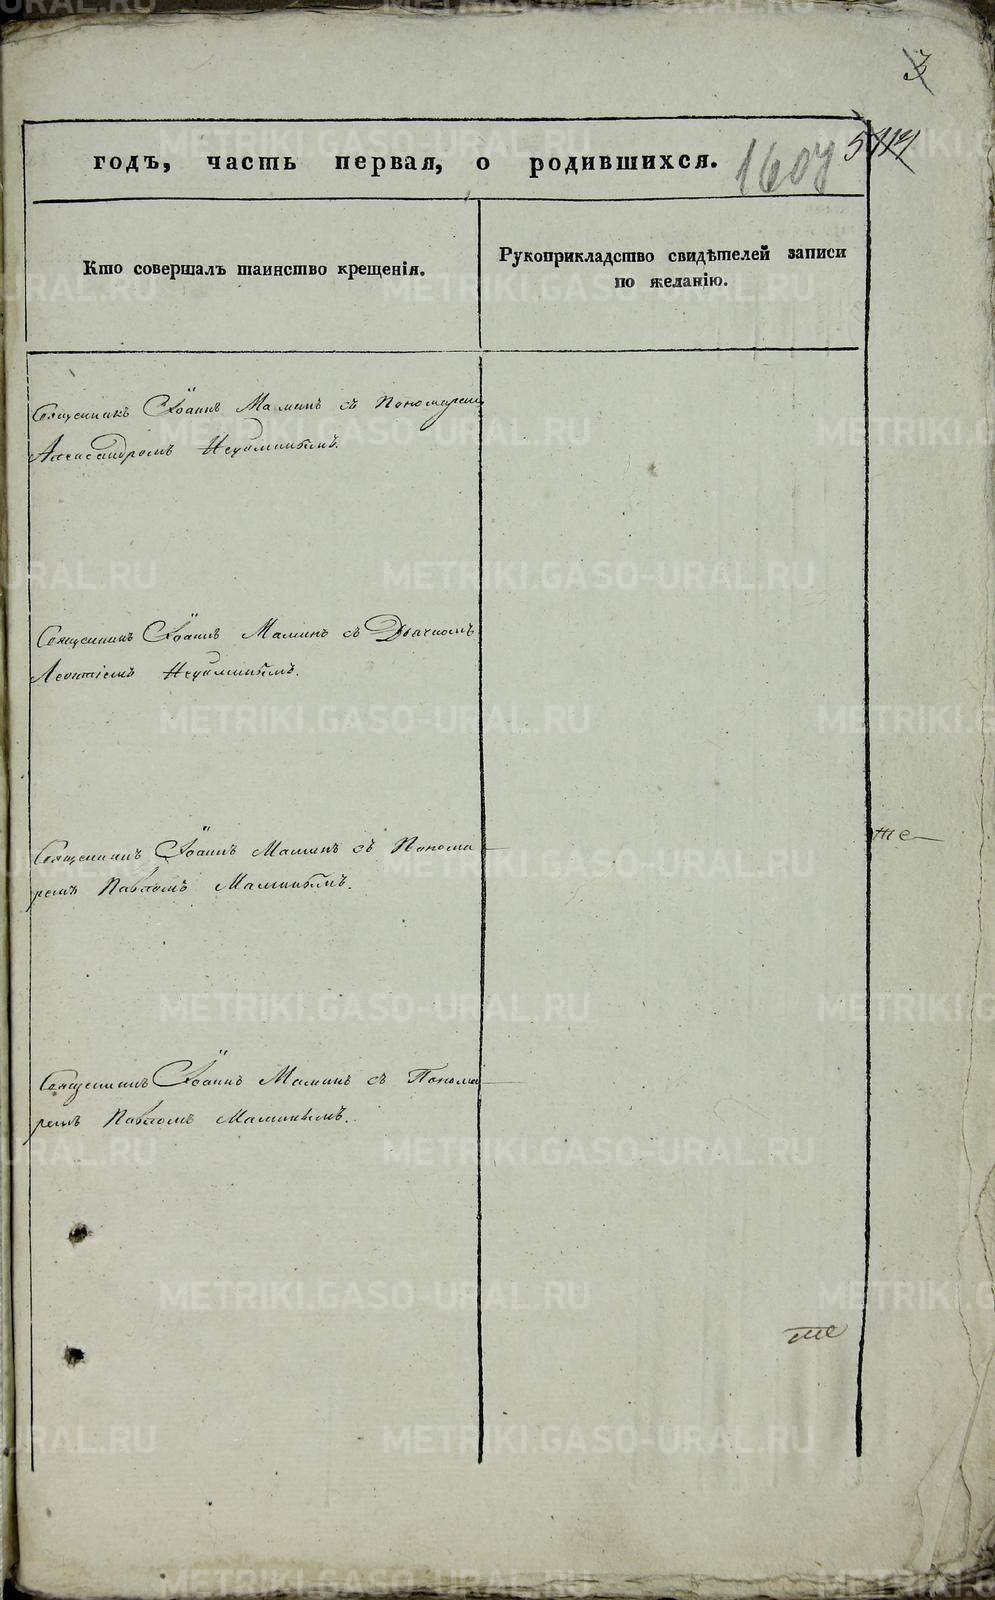 3
годъ, часть первая, о родившихся.
1607
Кто совершалъ таинство крещенія.
Рукоприкладство свидѣтелей записи
по желанію.
Священникъ Іоаннъ Маминъ съ Пономаремъ
Александромъ
Священникъ Іоаннъ Маминъ съ Дьячкомъ
Леонтіемъ
Священникъ Іоаннъ Маминъ съ Понома
ремъ Павломъ Маминымъ.
Священникъ Іоаннъ Маминъ съ Понома
ремъ Павломъ Маминымъ.
METRIKI.GASO-URAL.RU